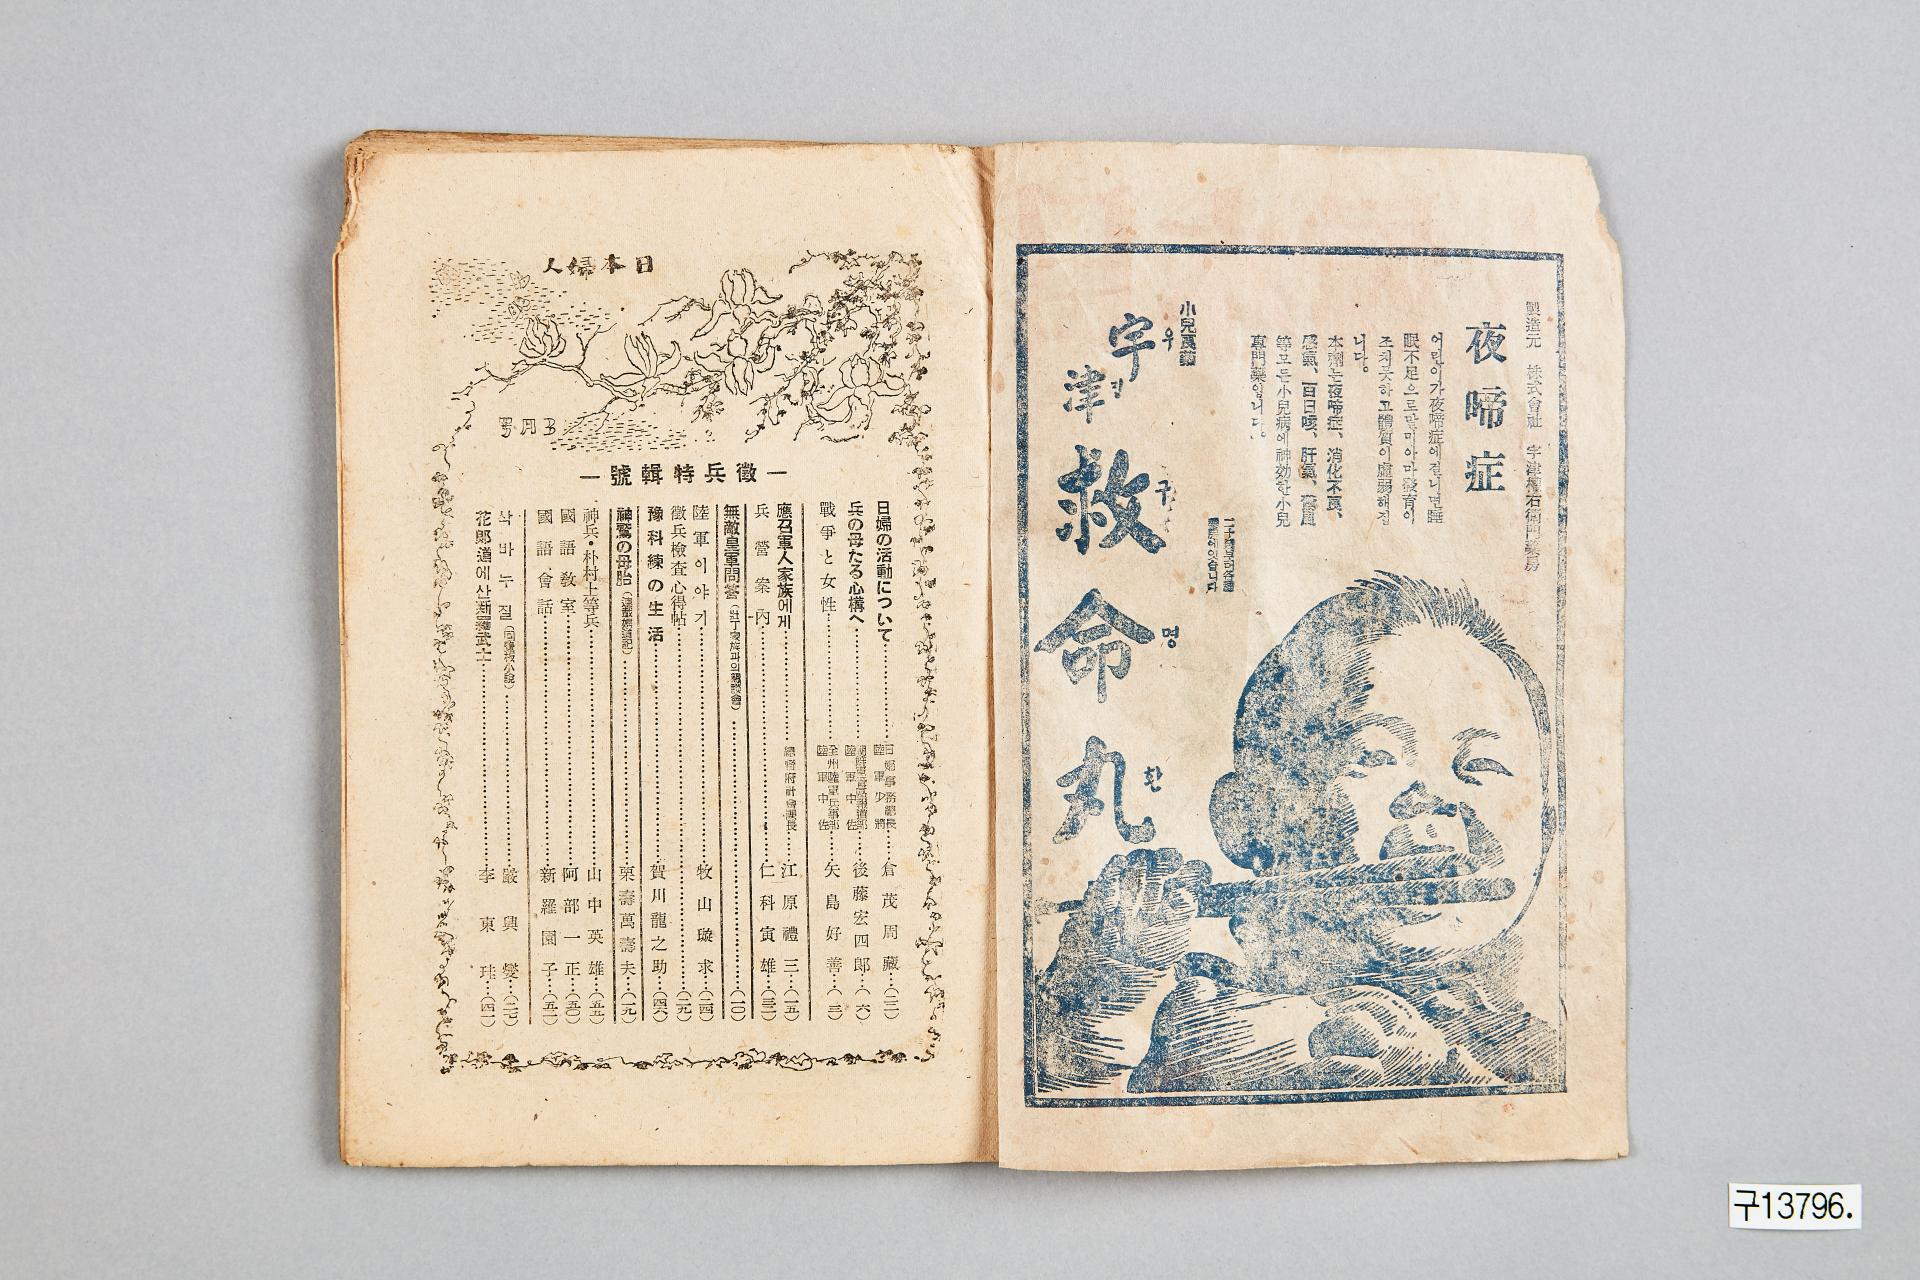 製造元 株式會社 宇津權右衛門藥房
夜啼症
어린이가夜啼症에걸니면睡
眠不足으로말미아마發育이
조치못하고體質이虛弱해집
니다。
本劑는夜啼症、消化不良、
感氣、百日咳、肝氣、驚風
等모든小兒病에神効한小兒
專門藥입니다。
小兒良藥
宇津救命丸
우진구명환
日本婦人
3月号
―徵兵特輯號―
日婦の活動について 日婦事務總長 陸軍少將 倉茂周藏 (二)
兵の母たる心構へ 陸軍中佐 後藤宏四郎 (六)
戰爭と女性 陸軍中佐 矢島好善 (三)
應召軍人家族에게 總督府社會課長 江原禮三 (一五)
兵營案內 仁科寅雄 (三一)
無敵皇軍問答 (壯丁家族과의懇談會) (一〇)
陸軍이야기 牧山璇求 (二四)
徵兵檢査心得帖 (二九)
豫科練の生活 賀川龍之助 (四六)
神鷲の母胎 栗壽萬壽夫 (一九)
神兵・朴村上等兵 山中英雄 (五五)
國語敎室 阿部一正 (五〇)
國語會話 新羅園子 (五二)
삭바누질 嚴興燮 (三七)
花郞道에산新羅武士 李東珪 (四一)
구13796.